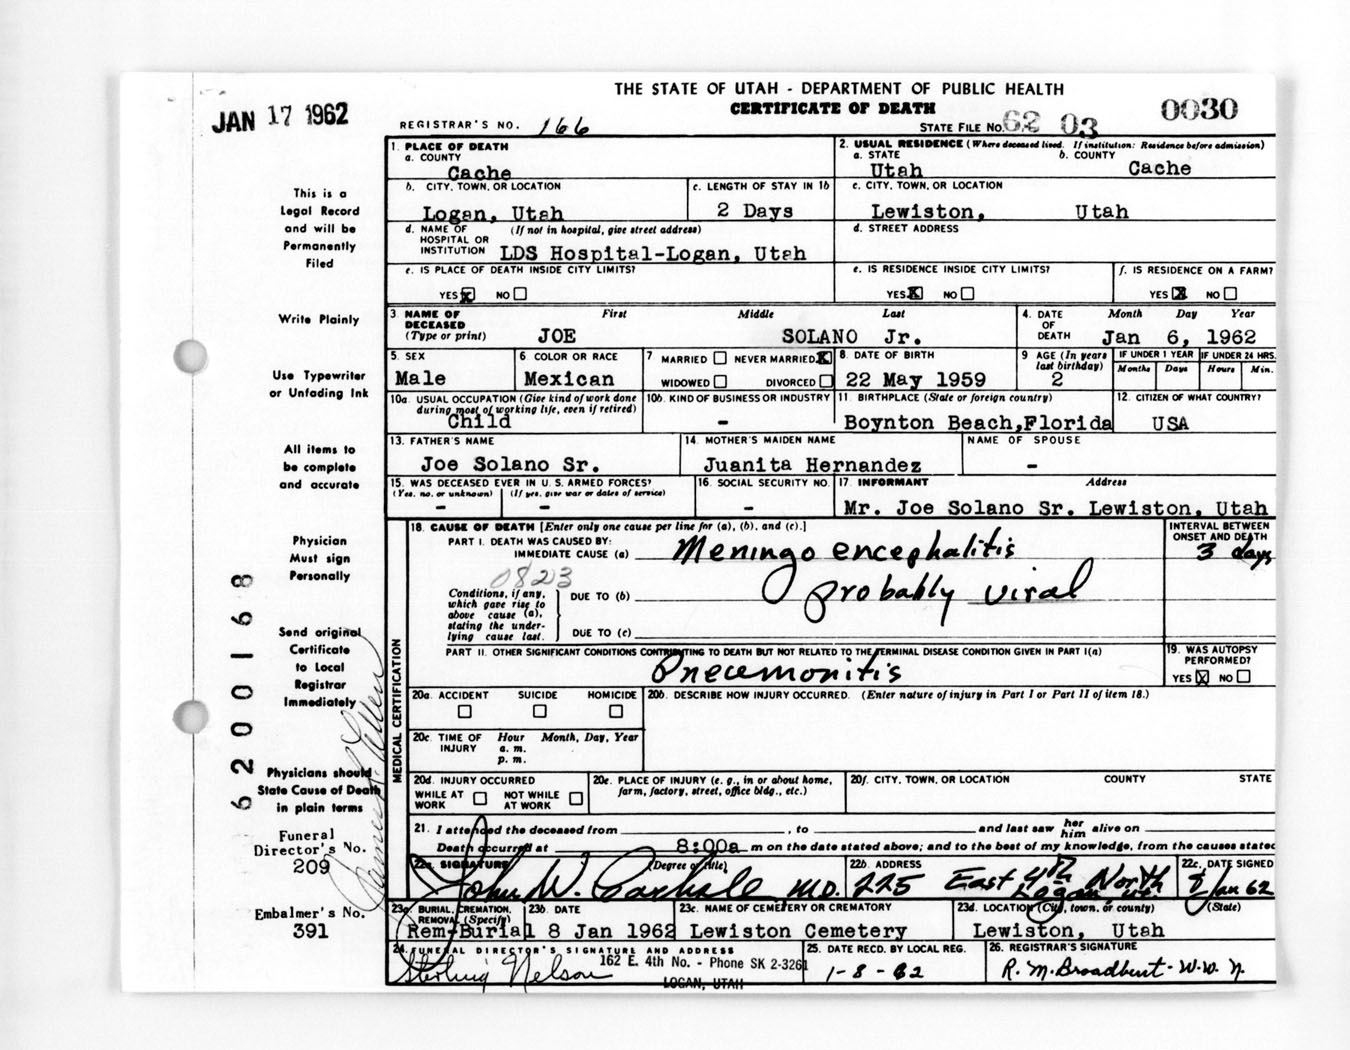 THE STATE OF UTAH - DEPARTMENT OF PUBLIC HEALTH
CERTIFICATE OF DEATH
JAN 17 1962
REGISTRAR'S NO. 166
STATE FILE NO. 62 03 0030
1. PLACE OF DEATH
a. COUNTY
Cache
2. USUAL RESIDENCE (Where deceased lived. If institution: Residence before admission)
a. STATE b. COUNTY
Utah Cache
b. CITY, TOWN, OR LOCATION
Logan, Utah
c. LENGTH OF STAY IN 1b
2 Days
c. CITY, TOWN, OR LOCATION
Lewiston, Utah
d. NAME OF (If not in hospital, give street address)
HOSPITAL OR
INSTITUTION LDS Hospital-Logan, Utah
d. STREET ADDRESS
e. IS PLACE OF DEATH INSIDE CITY LIMITS?
YES X NO
e. IS RESIDENCE INSIDE CITY LIMITS?
YES X NO
f. IS RESIDENCE ON A FARM?
YES X NO
3. NAME OF First Middle Last
DECEASED
(Type or print) JOE SOLANO Jr.
4. DATE Month Day Year
OF
DEATH Jan 6, 1962
5. SEX
Male
6 COLOR OR RACE
Mexican
7 MARRIED NEVER MARRIED X
WIDOWED DIVORCED
8. DATE OF BIRTH
22 May 1959
9 AGE (In years
last birthday)
2
IF UNDER 1 YEAR IF UNDER 24 HRS.
Months Days Hours Min.
10a. USUAL OCCUPATION (Give kind of work done
during most of working life, even if retired)
Child
10b. KIND OF BUSINESS OR INDUSTRY
-
11. BIRTHPLACE (State or foreign country)
Boynton Beach,Florida
12. CITIZEN OF WHAT COUNTRY?
USA
13. FATHER'S NAME
Joe Solano Sr.
14. MOTHER'S MAIDEN NAME
Juanita Hernandez
NAME OF SPOUSE
-
15. WAS DECEASED EVER IN U. S. ARMED FORCES?
(Yes, no, or unknown) (If yes, give war or dates of service)
- -
16. SOCIAL SECURITY NO.
-
17. INFORMANT Address
Mr. Joe Solano Sr. Lewiston, Utah
18. CAUSE OF DEATH [Enter only one cause per line for (a), (b), and (c).]
INTERVAL BETWEEN
ONSET AND DEATH
PART I. DEATH WAS CAUSED BY:
IMMEDIATE CAUSE (a) Meningo encephalitis 3 days
0823
Conditions, if any,
which gave rise to
above cause (a),
stating the under-
lying cause last.
DUE TO (b) probably viral
DUE TO (c)
PART II. OTHER SIGNIFICANT CONDITIONS CONTRIBUTING TO DEATH BUT NOT RELATED TO THE TERMINAL DISEASE CONDITION GIVEN IN PART I(a)
Pneumonitis
19. WAS AUTOPSY
PERFORMED?
YES X NO
20a. ACCIDENT SUICIDE HOMICIDE
20b. DESCRIBE HOW INJURY OCCURRED. (Enter nature of injury in Part I or Part II of item 18.)
20c. TIME OF Hour Month, Day, Year
INJURY a. m.
p. m.
20d. INJURY OCCURRED
WHILE AT NOT WHILE
WORK AT WORK
20e. PLACE OF INJURY (e. g., in or about home,
farm, factory, street, office bldg., etc.)
20f. CITY, TOWN, OR LOCATION COUNTY STATE
21. I attended the deceased from , to and last saw her him alive on
Death occurred at 8:00a m on the date stated above; and to the best of my knowledge, from the causes stated
22a. SIGNATURE (Degree or title)
John W. Carlisle M.D.
22b. ADDRESS
225 East 4th North
Logan Ut.
22c. DATE SIGNED
8 Jan 62
23a. BURIAL, CREMATION,
REMOVAL (Specify)
Rem-Burial
23b. DATE
8 Jan 1962
23c. NAME OF CEMETERY OR CREMATORY
Lewiston Cemetery
23d. LOCATION (City, town, or county) (State)
Lewiston, Utah
24. FUNERAL DIRECTOR'S SIGNATURE AND ADDRESS
Sterling Nelson 162 E. 4th No. - Phone SK 2-3261
LOGAN, UTAH
25. DATE RECD. BY LOCAL REG.
1-8-62
26. REGISTRAR'S SIGNATURE
R. M. Broadbent - W.W.N.
MEDICAL CERTIFICATION
This is a
Legal Record
and will be
Permanently
Filed
Write Plainly
Use Typewriter
or Unfading Ink
All items to
be complete
and accurate
Physician
Must sign
Personally
Send original
Certificate
to Local
Registrar
Immediately
Physicians should
State Cause of Death
in plain terms
Funeral
Director's No.
209
Embalmer's No.
391
62 00168